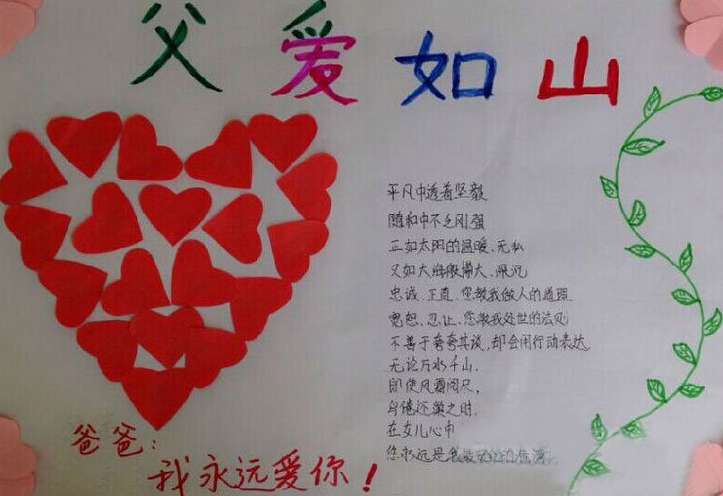 父爱如山
平凡中透着坚毅
随和中不乏刚强
正如太阳的温暖、无私
又如大海般博大、深沉
忠诚、正直、您教我做人的道理
宽恕、忍让、您教我处世的法则
不善于夸夸其谈,却会用行动表达
无论万水千山,
即使风霜阅尽,
身倦还巢之时,
在女儿心中
您永远是我
爸爸:
我永远爱你!